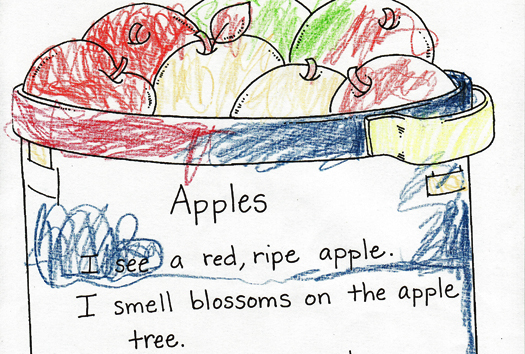 Apples
I see a red, ripe apple.
I smell blossoms on the apple
tree.